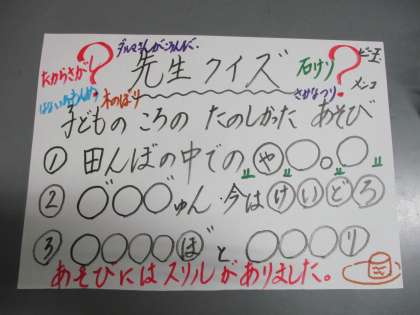 ダルマさんがころんだ。
たからさがし ? 先生クイズ 石けり ? ビー玉
木のぼり さかなつり メンコ
子どものころの たのしかった あそび
① 田んぼの中での "や〇。〇"
② 〇〇〇ゅん 今はけいどろ
③ 〇〇〇〇ぼと 〇〇〇〇り
あそびにはスリルがありました。